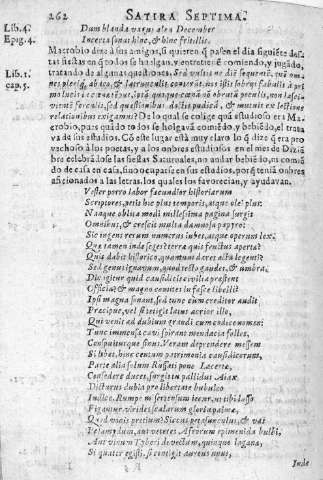 262 SATIRA SEPTIMA.
Lib. 4. Dum blanda vagus alea December
Epig. 4. Incertis sonat hinc, & hinc fritillis.
Macrobio dize à sus amigos, si quieren q̃ pasen el dia siguiẽte des-
tas fiestas en q̃ todos se huelgan, y entretiẽnẽ comiendo, y jugãdo,
Lib. 1. tratando de algunas questiones.
cap. 5.
Macro-
bio, pues quãdo todos se holgavã comiẽdo, y bebiẽdo, el trata
va de sus estudios. Cõ este lugar està muy claro lo q̃ dize q̃ era pro
vechoso à los poetas, y a los onbres estudiosos en el mes de Dizië
bre celebrãdose las fiestas Saturnales, no andar bebiẽdo, ni comiẽ
do de casa en casa, sino ocuparse en sus estudios, porq̃ teniã onbres
aficionados a las letras, los quales los favorecian, y ayudavan.
Vester porro labor fœcundior historiarum
Scriptores, petit hic plus temporis, atque olei plus:
Nanque oblita modi millesima pagina surgit
Omnibus, & crescit multa damnosa papyro:
Sic ingens rerum numerus iubet, atque operum lex.
Quæ tamen inde seges? terræ quis fructus apertæ?
Quis dabit historico, quantum daret acta legenti?
Sed genus ignavum, quod tecto gaudet, & umbra.
Dic igitur quid causidicis civilia præstent
Officia? & magno comites in fasce libelli?
Ipsi magna sonant, sed tunc cum creditor audit
Præcipue, vel si tetigit latus acrior illo,
Qui venit ad dubium grandi cum codice nomen:
Tunc immensa cavi spirant mendacia folles,
Conspuiturque sinus. Veram deprendere messem
Si libet, hinc centum patrimonia causidicorum,
Parte alia solum Russati pone Lacertæ.
Consedere duces, surgis tu pallidus Aiax
Dicturus dubia pro libertate bubulco
Iudice. Rumpe miser tensum iecur, ut tibi lasso
Figantur virides scalarum gloria palmæ,
Quod vocis pretium? Siccus petasunculus, & vas
Pelamydum, aut veteres Afrorum epimenia bulbi,
Aut vinum Tyberi devectum, quinque lagenæ,
Si quater egisti, si contigit aureus unus,
Inde